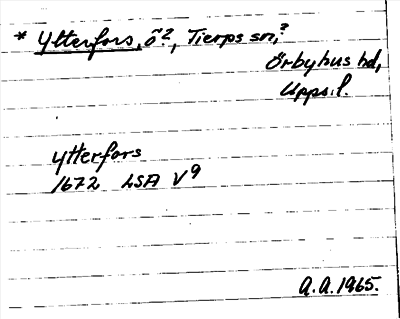 * Ytterfors, ö?, Tierps sn,?
Örbyhus hd,
Upps.l.
Ytterfors
1672 LSA V9
A.A. 1965.